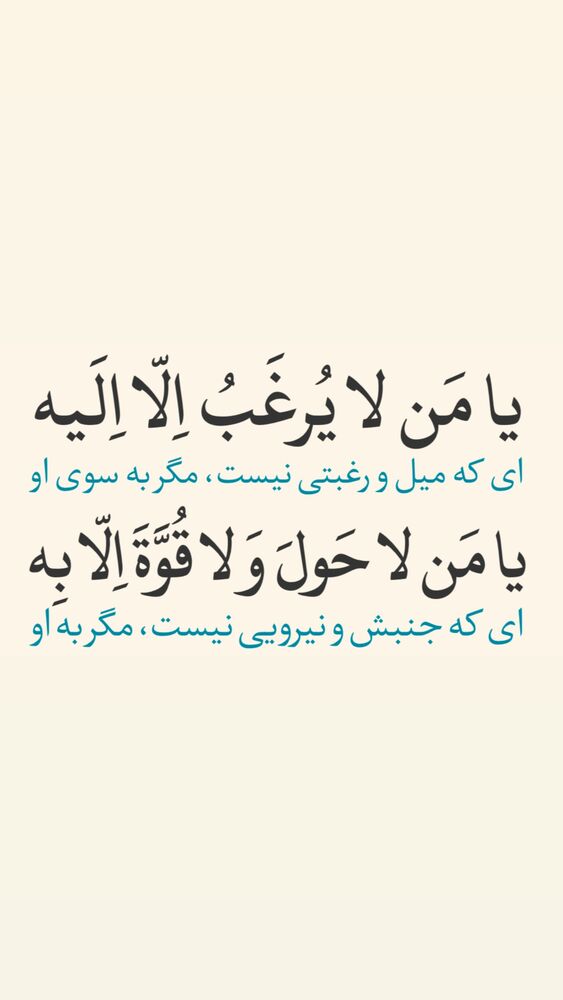 يا مَن لا يُرغَبُ اِلّا اِلَيه
ای که میل و رغبتی نیست، مگر به سوی او
يا مَن لا حَولَ وَ لا قُوَّةَ اِلّا بِه
ای که جنبش و نیرویی نیست، مگر به او